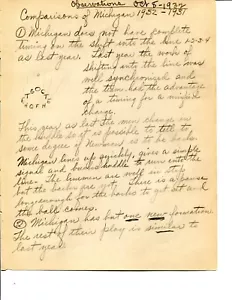 Observations Oct 5-1932
Comparisons of Michigan 1932 - 1931
① Michigan does not have complete
timing on the shift into the line 1-2-3-4
as last year. Last year the work of
shifting into the line was
well synchronized and
the team had the advantage
of a timing for a mixed
charge.
This year as last the men change in
the huddle so it as possible to tell to
some degree of
Michigan lines up quickly, gives a simple
signal and backs huddle to
line. The linemen are well in step
but the backs are not. There is a pause
long enough for the backs to get set and
the ball comes.
② Michigan has but one new formation
The rest of their play is similar to
last year.